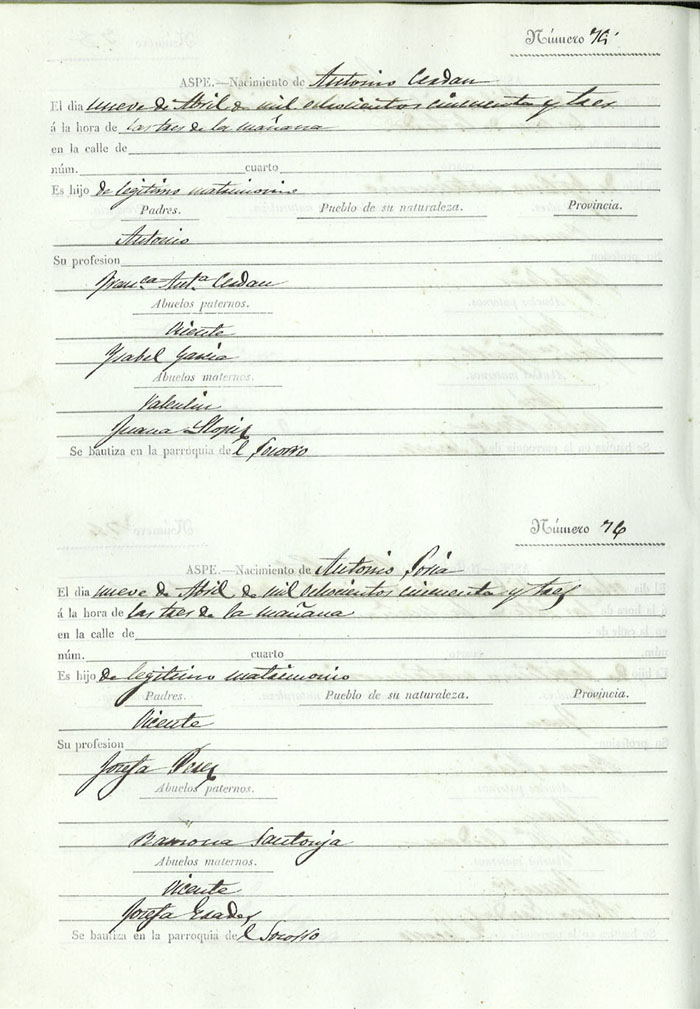 Número 75
ASPE.—Nacimiento de Antonio Cerdan
El dia nueve de Abril de mil ochocientos cincuenta y tres
á la hora de las tres de la mañana
en la calle de
núm. cuarto
Es hijo de legitimo matrimonio
Padres. Pueblo de su naturaleza. Provincia.
Antonio
Su profesion
Franca Anta Cerdan
Abuelos paternos.
Vicente
Ysabel Garcia
Abuelos maternos.
Valentin
Juana Llopis
Se bautiza en la parroquia de l Socorro
Número 76
ASPE.—Nacimiento de Antonio Soria
El dia nueve de Abril de mil ochocientos cincuenta y tres
á la hora de las tres de la mañana
en la calle de
núm. cuarto
Es hijo de legitimo matrimonio
Padres. Pueblo de su naturaleza. Provincia.
Vicente
Su profesion
Josefa Perez
Abuelos paternos.
Ramona Santonja
Abuelos maternos.
Vicente
Josefa
Se bautiza en la parroquia de l Socorro